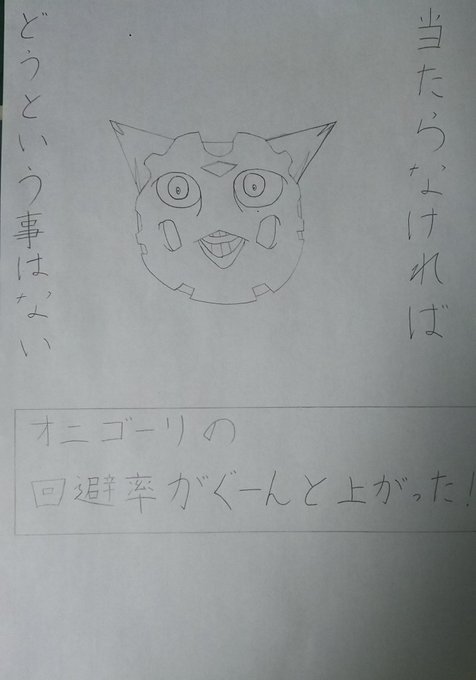 当たらなければ
どうという事はない
オニゴーリの
回避率がぐーんと上がった!